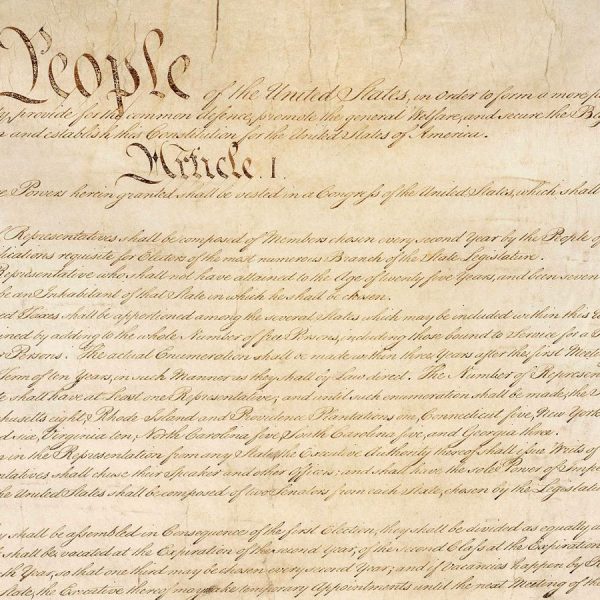 People of the United States, in Order to form a more
provide for the common defence, promote the general Welfare, and secure the
and establish this Constitution for the United States of America.
Article. I.
Powers herein granted shall be vested in a Congress of the United States, which shall
Representatives shall be composed of Members chosen every second Year by the People of
requisite for Electors of the most numerous Branch of the State Legislature.
Representative who shall not have attained to the Age of twenty five Years, and been seven
be an Inhabitant of that State in which he shall be chosen.
Taxes shall be apportioned among the several States which may be included within this
by adding to the whole Number of free Persons, including those bound to Service for a
Persons. The actual Enumeration shall be made within three Years after the first
Term of ten Years, in such Manner as they shall by Law direct. The Number of
shall have at Least one Representative; and until such enumeration shall be made, the
eight, Rhode Island and Providence Plantations one, Connecticut five, New York
Virginia ten, North Carolina five, South Carolina five, and Georgia three.
in the Representation from any State, the Executive Authority thereof shall issue Writs of
shall chuse their Speaker and other Officers; and shall have the sole Power of
the United States shall be composed of two Senators from each State, chosen by the
shall be assembled in Consequence of the first Election, they shall be divided as equally
shall be vacated at the Expiration of the second Year, of the second Class at the Expiration
Year, so that one third may be chosen every second Year; and if Vacancies happen by
State, the Executive thereof may make temporary Appointments until the next Meeting of the